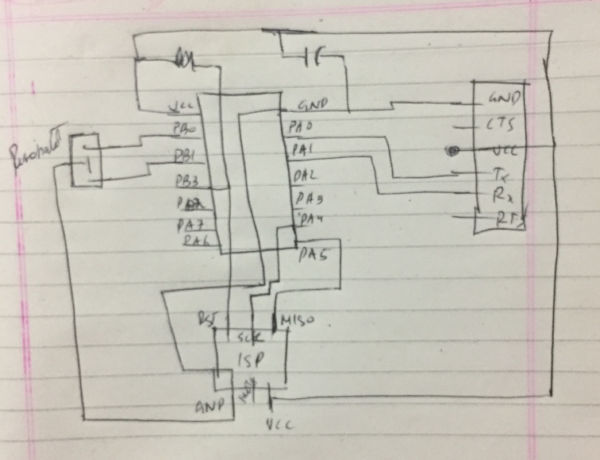 VCC
PB0
PB1
PB3
PA7
PA6
GND
PA0
PA1
PA2
PA3
PA4
PA5
GND
CTS
VCC
Tx
Rx
RTS
RST
SCK
MISO
ISP
GND
VCC